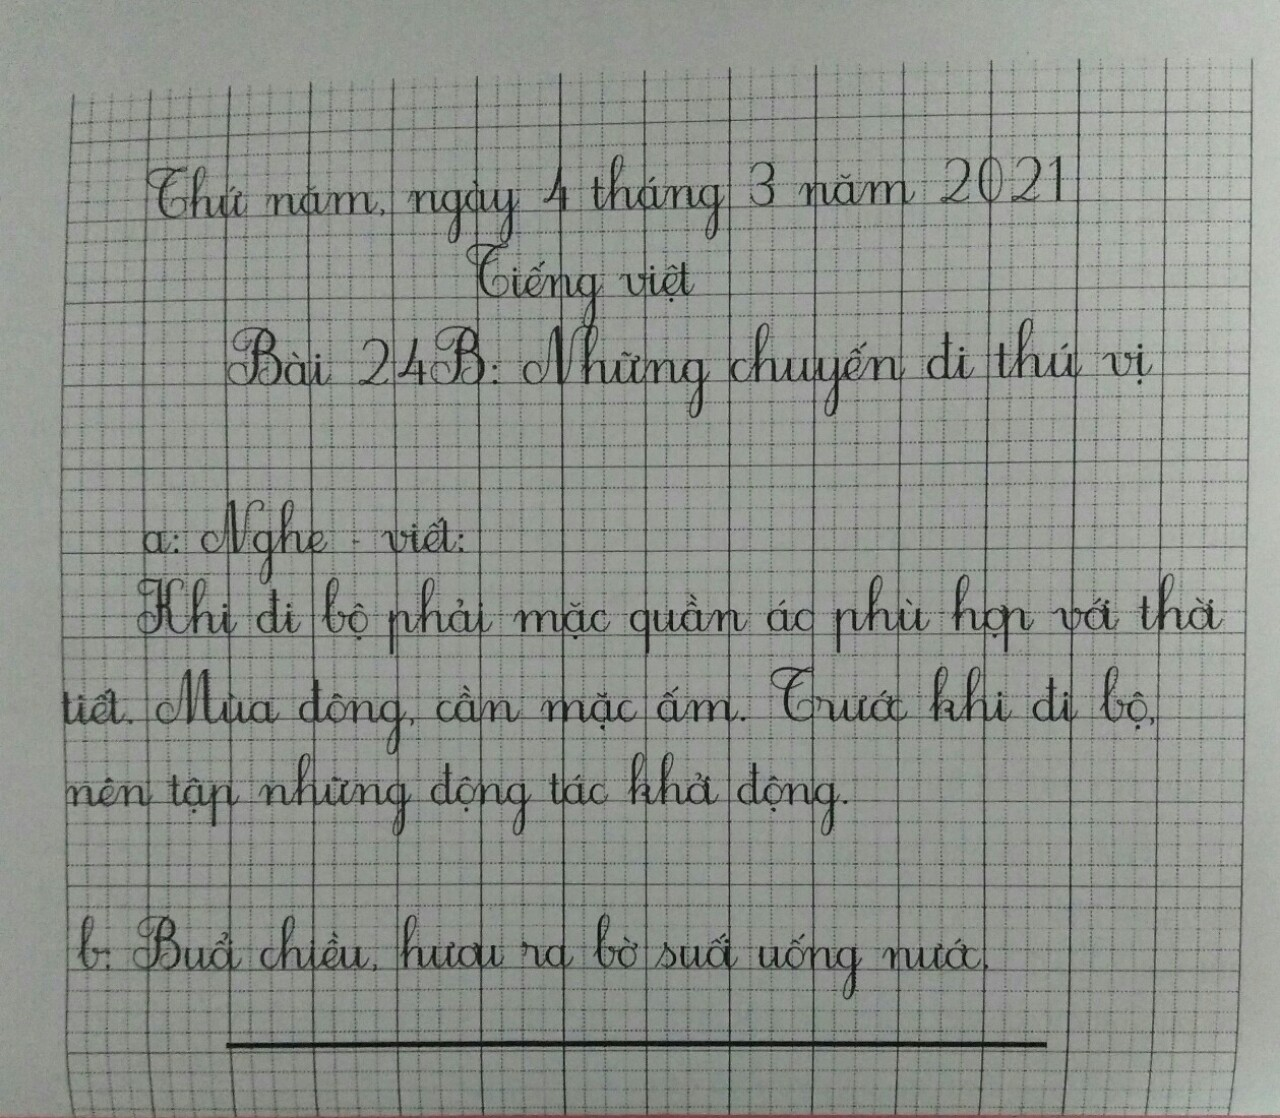 Thứ năm, ngày 4 tháng 3 năm 2021
Tiếng việt
Bài 24B: Những chuyến đi thú vị
a: Nghe - viết:
Khi đi bộ phải mặc quần áo phù hợp với thời
tiết. Mùa đông, cần mặc ấm. Trước khi đi bộ,
nên tập những động tác khởi động.
b: Buổi chiều, hươu ra bờ suối uống nước.